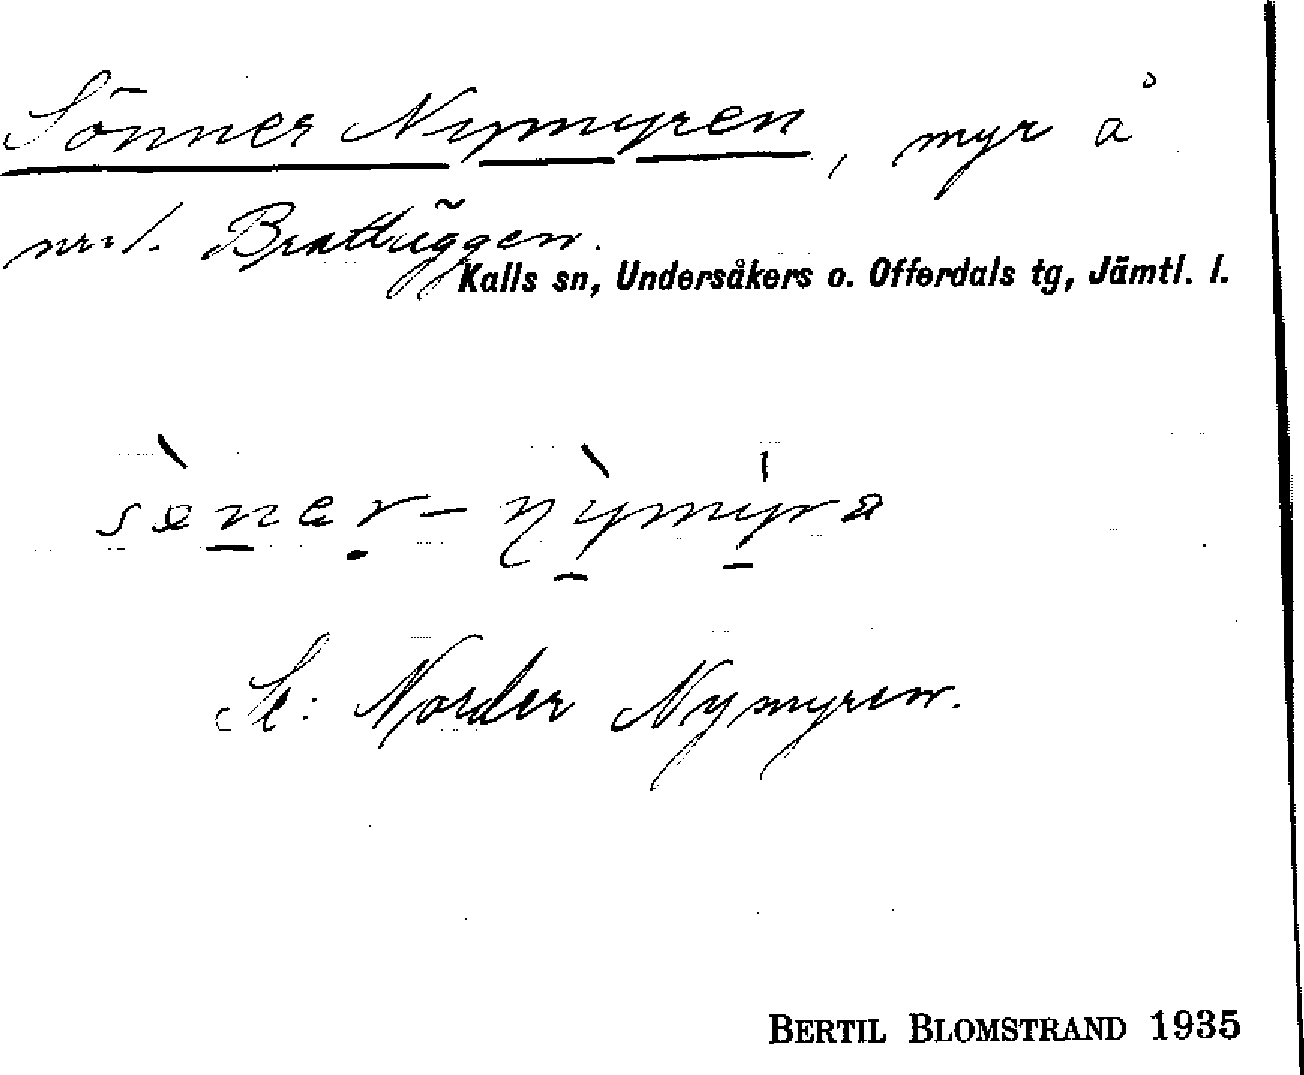 Sönner Nymyren, myr å
Brattuggen.
Kalls sn, Undersåkers o. Offerdals tg, Jämtl. l.
sènar-nỳmyra
Se: Norder Nymyren.
BERTIL BLOMSTRAND 1935